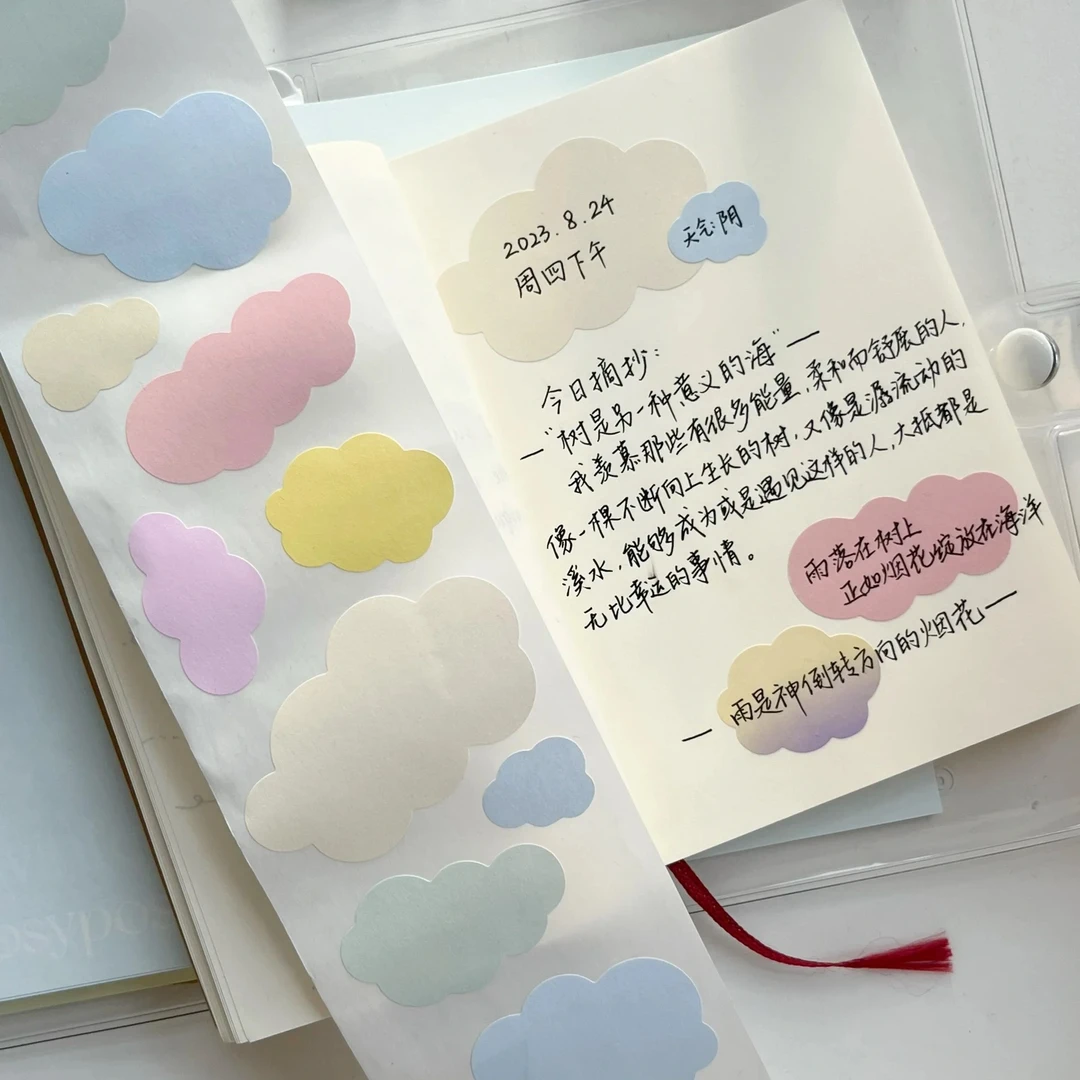 2023.8.24
周四下午
天气:阴
今日摘抄:
—“树是另一种意义的海”—
我羡慕那些有很多能量,柔和而舒展的人,
像一棵不断向上生长的树,又像是潺流动的
溪水,能够成为或是遇见这样的人,大抵都是
无比幸运的事情。
雨落在树上
正如烟花绽放在海洋
—雨是神倒转方向的烟花—